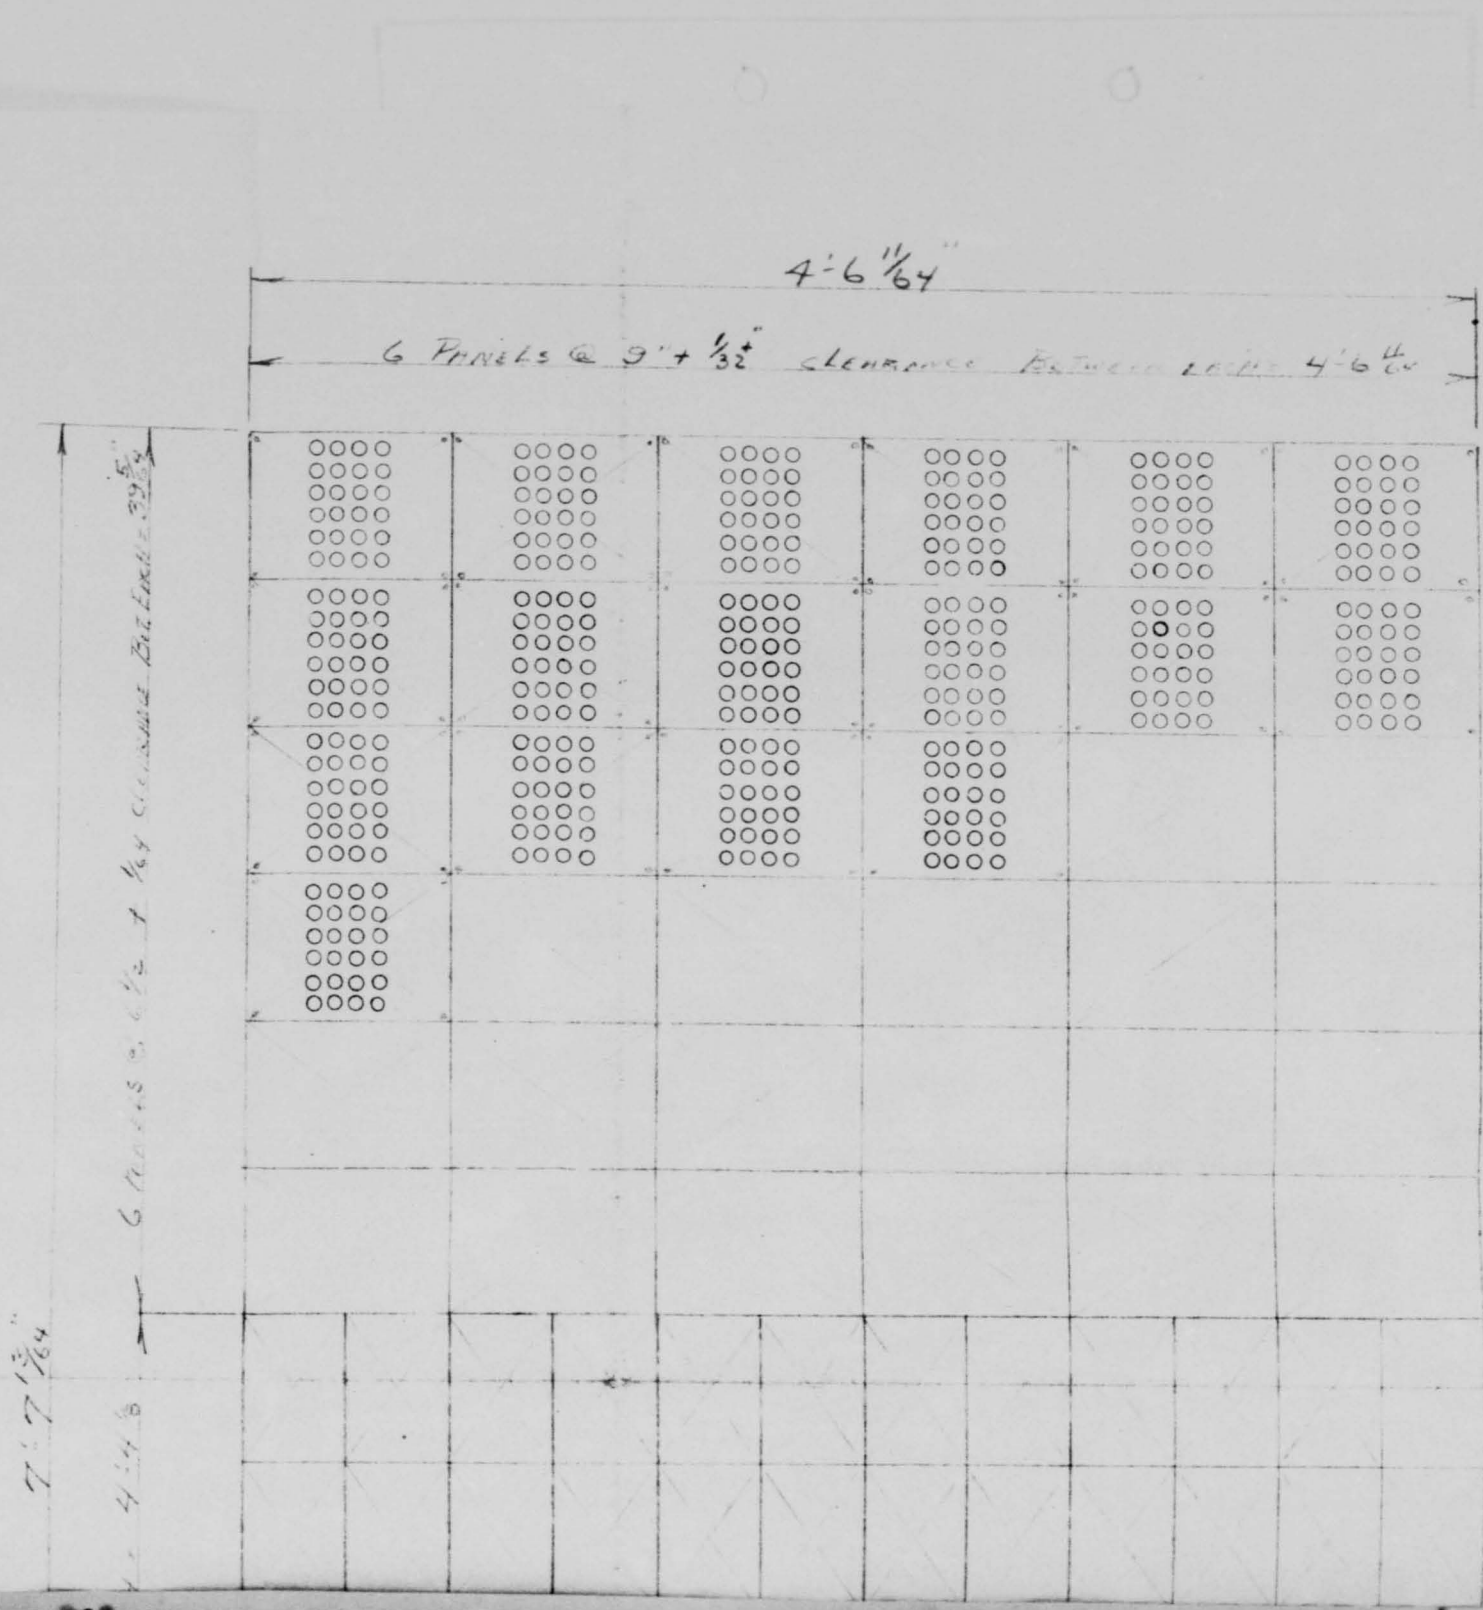 4'-6 11/64"
6 PANELS @ 9" + 1/32"± CLEARANCE BETWEEN EACH= 4'-6 11/64
6 PANELS @ 6 1/2 + 1/64 CLEARANCE BET EACH = 39 5/64"
7'-7
4'-4 1/8